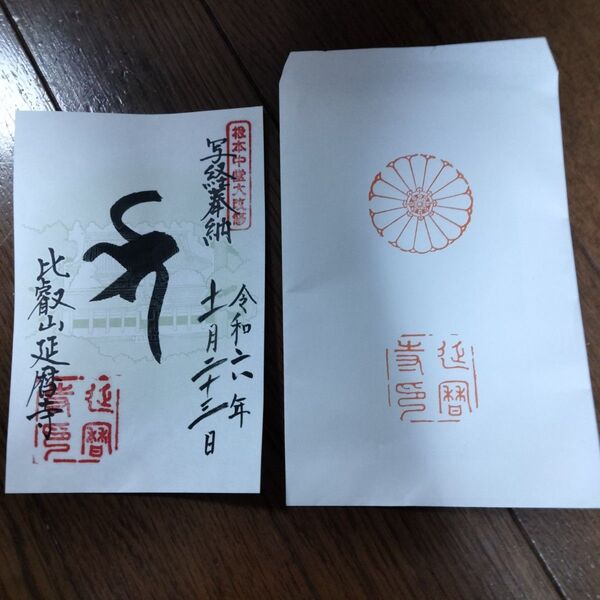 根本中堂大改修
写経奉納
令和六年
十一月二十三日
比叡山延暦寺
延暦
寺印
延暦
寺印